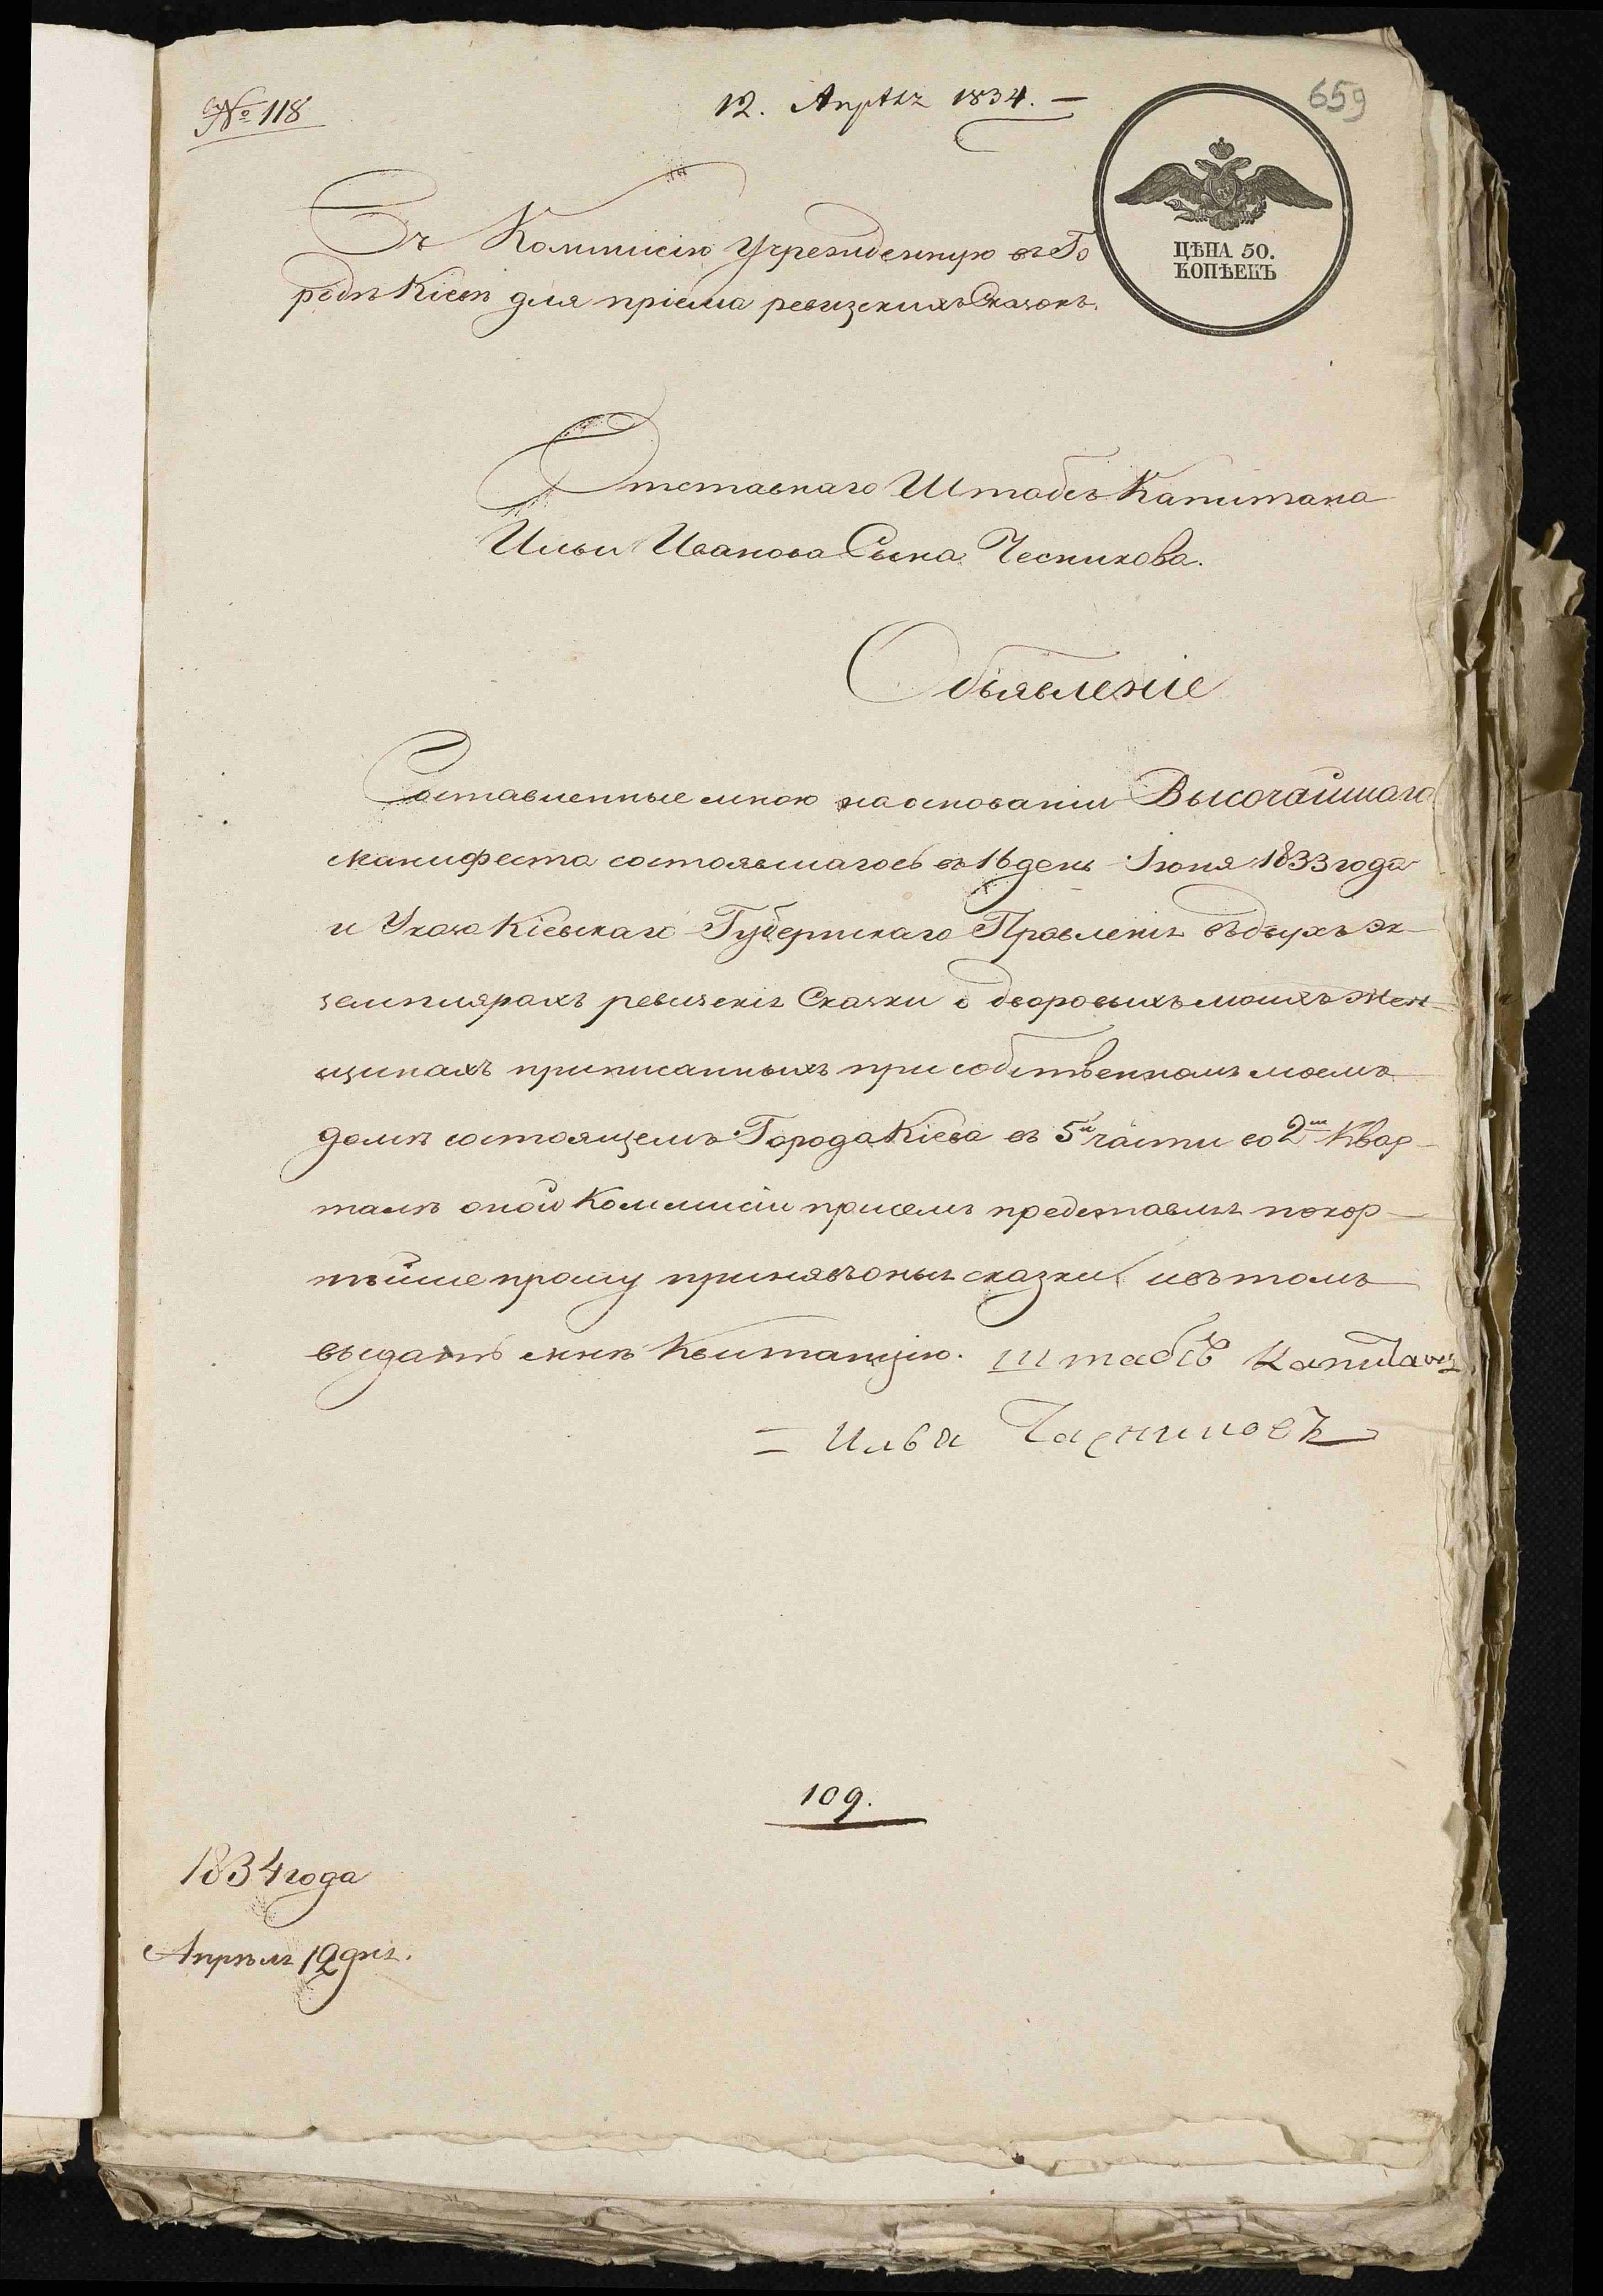 № 118
12. Апрѣля 1834. —
659
ЦѢНА 50.
КОПѢЕКЪ
Въ Коммисію Учрежденную въ Го
родѣ Кіевѣ для пріема ревизскихъ Сказокъ.
Отставнаго Штабсъ Капитана
Ильи Иванова Сына Чесникова.
Объявленіе
Составленные мною на основаніи Высочайшаго
манифеста состоявшагось въ 16 день Іюня 1833 года
и Указа Кіевскаго Губернскаго Правленія въ двухъ эк-
земплярахъ ревизскія Сказки о дворовыхъ моихъ Жен-
щинахъ приписанныхъ при собственномъ моемъ
домѣ состоящемъ Города Кіева въ 5й части во 2мъ Квар-
талѣ оной Коммисіи присемъ представляя покор-
нѣйше прошу принявъ оныя сказки и въ томъ
выдать мнѣ Квитанцію. штабсъ Капитанъ
= Илья Чесниковъ
109.
1834 года
Апрѣля 12 дня.